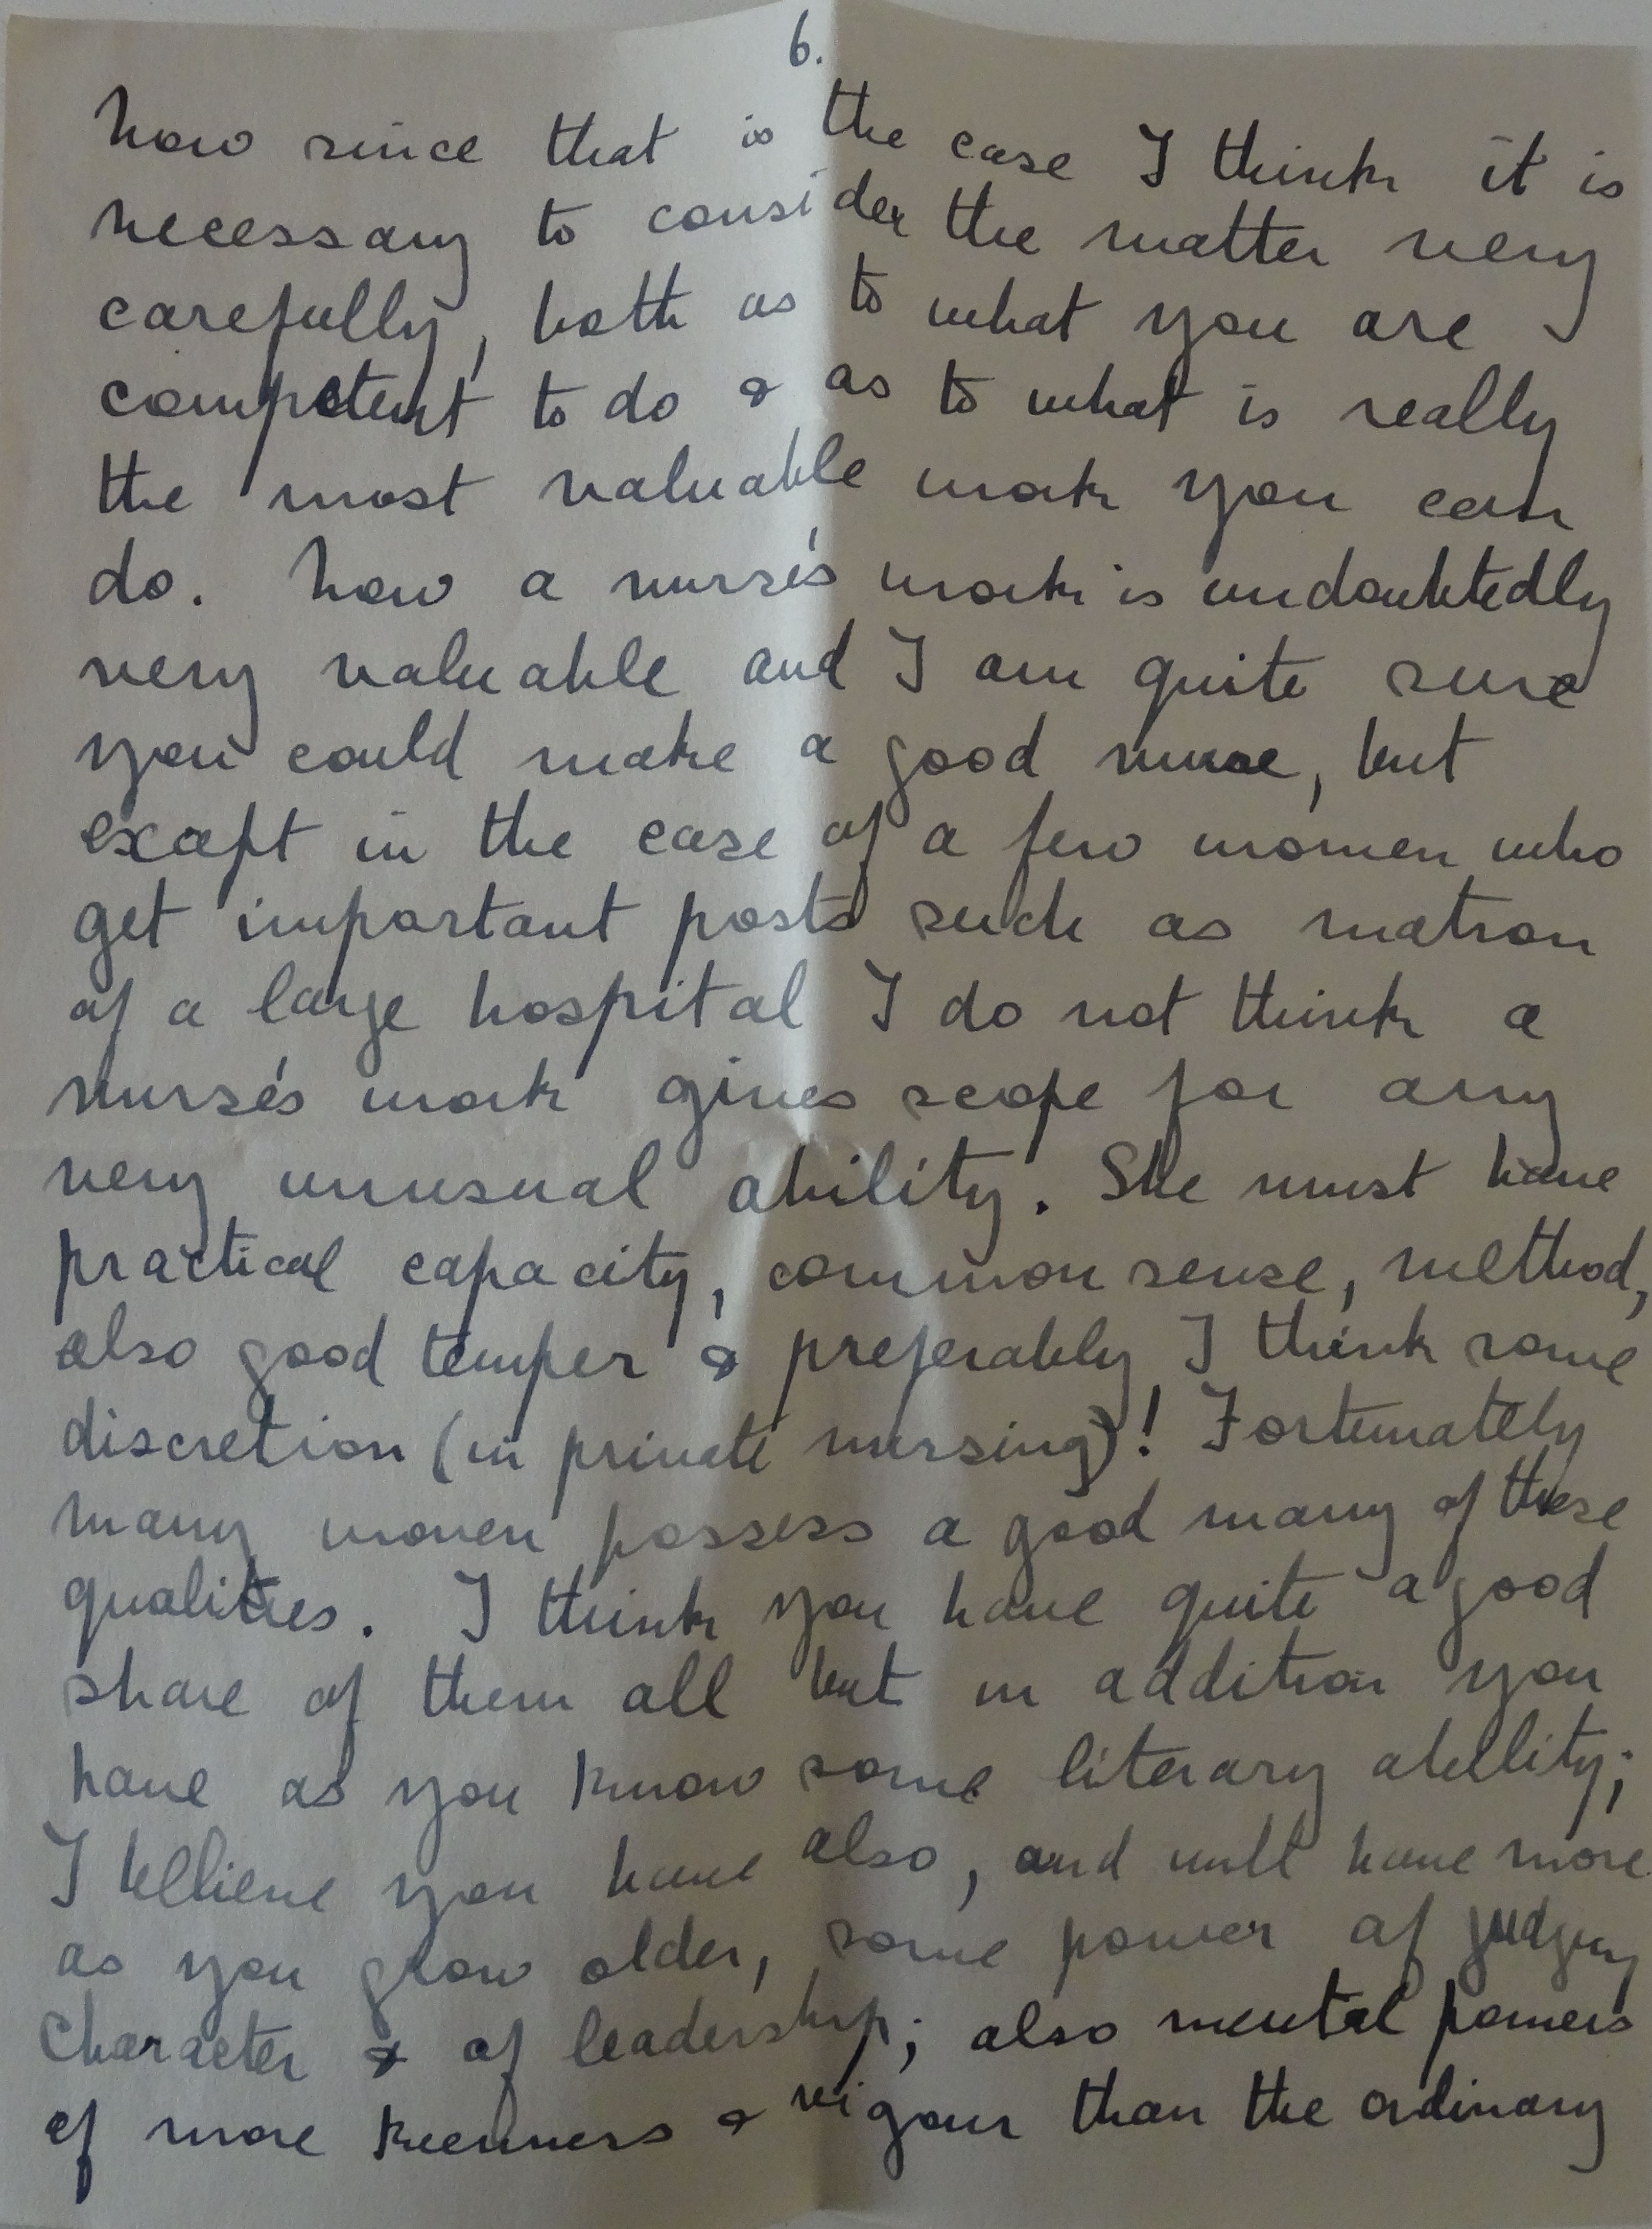 6.
Now since that is the case I think it is
necessary to consider the matter very
carefully, both as to what you are
competent to do & as to what is really
the most valuable work you can
do. Now a nurse's work is undoubtedly
very valuable and I am quite sure
you could make a good nurse, but
except in the case of a few women who
get important posts such as matron
of a large hospital I do not think a
nurse's work gives scope for any
very unusual ability. She must have
practical capacity, common sense, method,
also good temper & preferably I think some
discretion (in private nursing)! Fortunately
many women possess a good many of these
qualities. I think you have quite a good
share of them all but in addition you
have as you know some literary ability;
I believe you have also, and will have more
as you grow older, some power of judging
character & of leadership; also mental powers
of more keenness & vigour than the ordinary